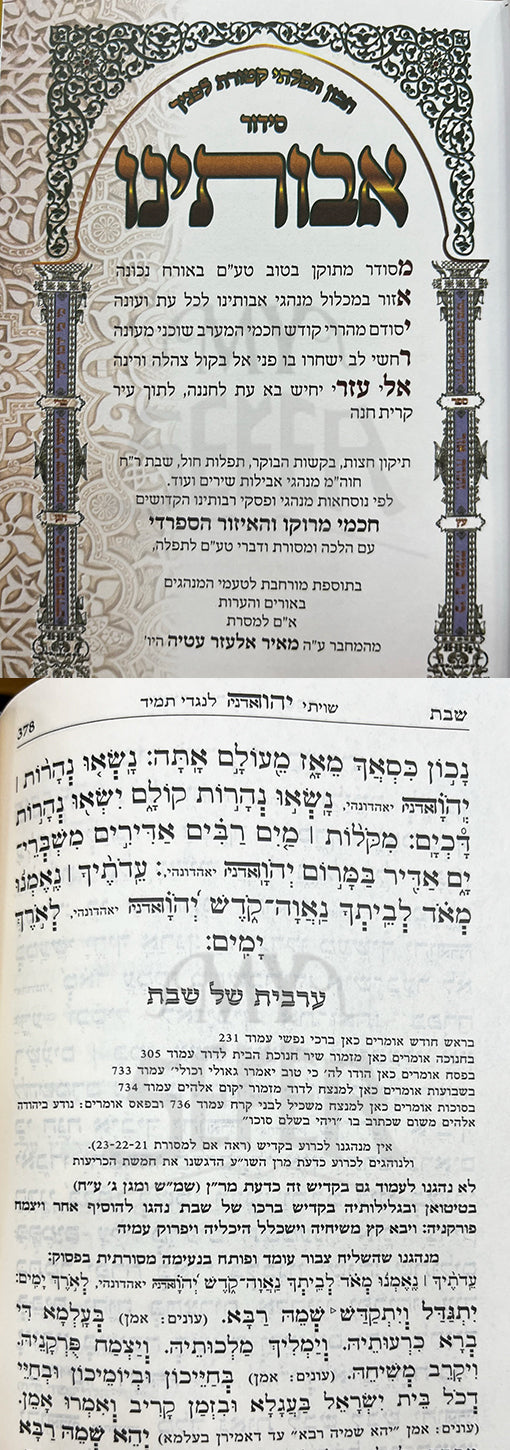 תכון תפלתי קטורת לפניך
סידור
אבותינו
מסודר מתוקן בטוב טע״ם באורח נכונה
אזור במכלול מנהגי אבותינו לכל עת ועונה
יסודם מהררי קודש חכמי המערב שוכני מעונה
רחשי לב ישחרו בו פני אל בקול צהלה ורינה
אלי עזרי יחיש בא עת לחננה, לתוך עיר
קרית חנה
תיקון חצות, בקשות הבוקר, תפלות חול, שבת ר״ח
חוה״מ מנהגי אבילות שירים ועוד.
לפי נוסחאות מנהגי ופסקי רבותינו הקדושים
חכמי מרוקו והאיזור הספרדי
עם הלכה ומסורת ודברי טע״ם לתפלה,
בתוספת מורחבת לטעמי המנהגים
באורים והערות
א״ם למסרת
מהמחבר ע״ה מאיר אלעזר עטיה היו׳
ספר
עץ
שבת שויתי יהואדניה לנגדי תמיד 378
נָכ֣וֹן כִּסְאֲךָ֣ מֵאָ֑ז מֵֽעוֹלָ֣ם אָֽתָּה: נָשְׂא֤וּ נְהָר֨וֹת ׀
יְֽהֹוָ֗ה יאהדונהי, נָשְׂא֣וּ נְהָר֣וֹת קוֹלָ֑ם יִשְׂא֖וּ נְהָר֣וֹת
דׇּכְיָֽם: מִקֹּל֨וֹת ׀ מַ֤יִם רַבִּ֗ים אַדִּירִ֣ים מִשְׁבְּרֵי־
יָ֑ם אַדִּ֖יר בַּמָּר֣וֹם יְהֹוָֽה יאהדונהי,: עֵֽדֹתֶ֨יךָ ׀ נֶאֶמְנ֬וּ
מְאֹ֗ד לְבֵיתְךָ֥ נַֽאֲוָה־קֹ֑דֶשׁ יְ֝הֹוָ֗ה יאהדונהי, לְאֹ֣רֶךְ
יָמִֽים:
ערבית של שבת
בראש חודש אומרים כאן ברכי נפשי עמוד 231
בחנוכה אומרים כאן מזמור שיר חנוכת הבית לדוד עמוד 305
בפסח אומרים כאן הודו לה׳ כי טוב יאמרו גאולי וכולי׳ עמוד 733
בשבועות אומרים כאן למנצח לדוד מזמור יקום אלהים עמוד 734
בסוכות אומרים כאן למנצח משכיל לבני קרח עמוד 736 ובפאס אומרים: נודע ביהודה
אלהים משום שכתוב בו ״ויהי בשלם סוכו״
אין מנהגנו לכרוע בקדיש (ראה אם למסורת 23-22-21).
ולנוהגים לכרוע כדעת מרן השו״ע הדגשנו את חמשת הכריעות
לא נהגנו לעמוד גם בקדיש זה כדעת מר״ן (שמ״ש ומגן ג׳ ע״ח)
בטיטואן ובגלילותיה בקדיש ברכו של שבת נהגו להוסיף אחר ויצמח
פורקניה: ויבא קץ משיחיה וישכלל היכליה ויפרוק עמיה
מנהגנו שהשליח צבור עומד ופותח בנעימה מסורתית בפסוק:
עֵֽדֹתֶ֨יךָ ׀ נֶאֶמְנ֬וּ מְאֹ֗ד לְבֵיתְךָ֥ נַֽאֲוָה־קֹ֑דֶשׁ יְ֝הֹוָ֗ה יאהדונהי, לְאֹ֣רֶךְ יָמִֽים:
יִתְגַּדַּל וְיִתְקַדַּשׁ שְׁמֵהּ רַבָּא. (עונים: אמן) בְּעָלְמָא דִּי
בְרָא כִרְעוּתֵיהּ. וְיַמְלִיךְ מַלְכוּתֵיהּ. וְיַצְמַח פֻּרְקָנֵיהּ.
וִיקָרֵב מְשִׁיחֵהּ. (עונים: אמן) בְּחַיֵּיכוֹן וּבְיוֹמֵיכוֹן וּבְחַיֵּי
דְכׇל בֵּית יִשְׂרָאֵל בַּעֲגָלָא וּבִזְמַן קָרִיב וְאִמְרוּ אָמֵן.
(עונים: אמן ״יהא שמיה רבא״ עד דאמירן בעלמא) יְהֵא שְׁמֵהּ רַבָּא